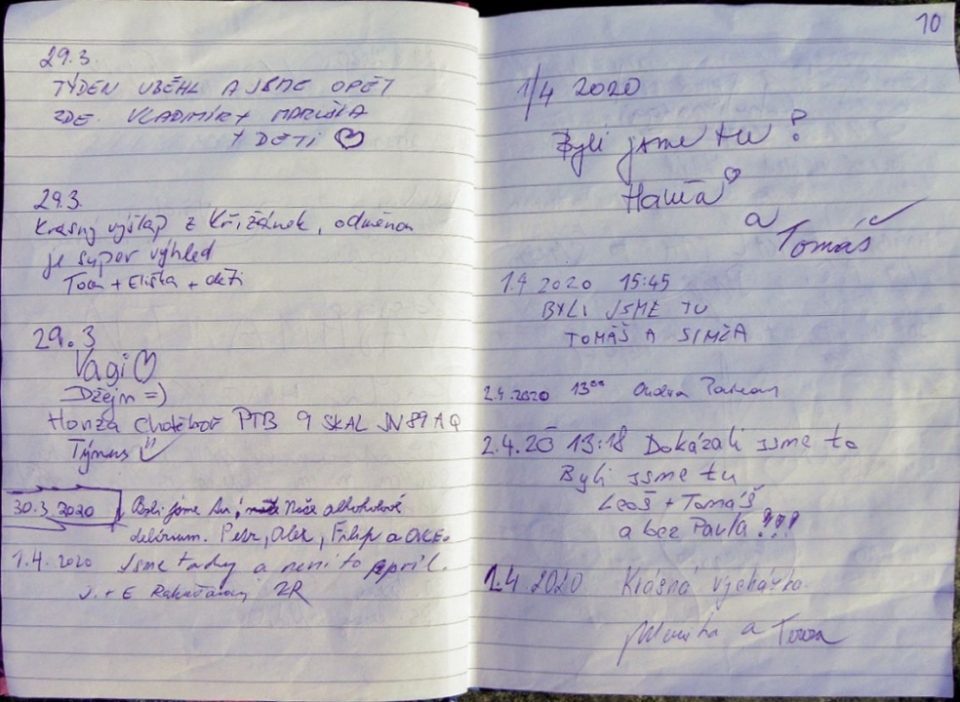 29.3.
TÝDEN UBĚHL A JSME OPĚT
ZDE. VLADIMÍR + MARUŠKA
+ DĚTI
29.3.
Krásný výšlap z Křižánek, odměnou
je super výhled
Tom + Eliška + děti
29.3
Vagi
Džejn =)
Honza Chotěboř PTB 9 SKAL JN89AQ
Týnus
30.3.2020 Byli jsme tu, Naše alkoholové
delirium. Petr, Alex, Filip a
1.4. 2020 Jsme tady a není to apríl.
J. + E ZR
10
1/4 2020
Byli jsme tu ?
Hanča
a
Tomáš
1.4 2020 15:45
BYLI JSME TU
TOMÁŠ A SIMČA
2.4.2020 13⁰⁰ Ondra
2.4.20 13:18 Dokázali jsme to
Byli jsme tu
Leoš + Tomáš
a bez Pavla !!!
2.4 2020 Krásná vycházka.
Monika a